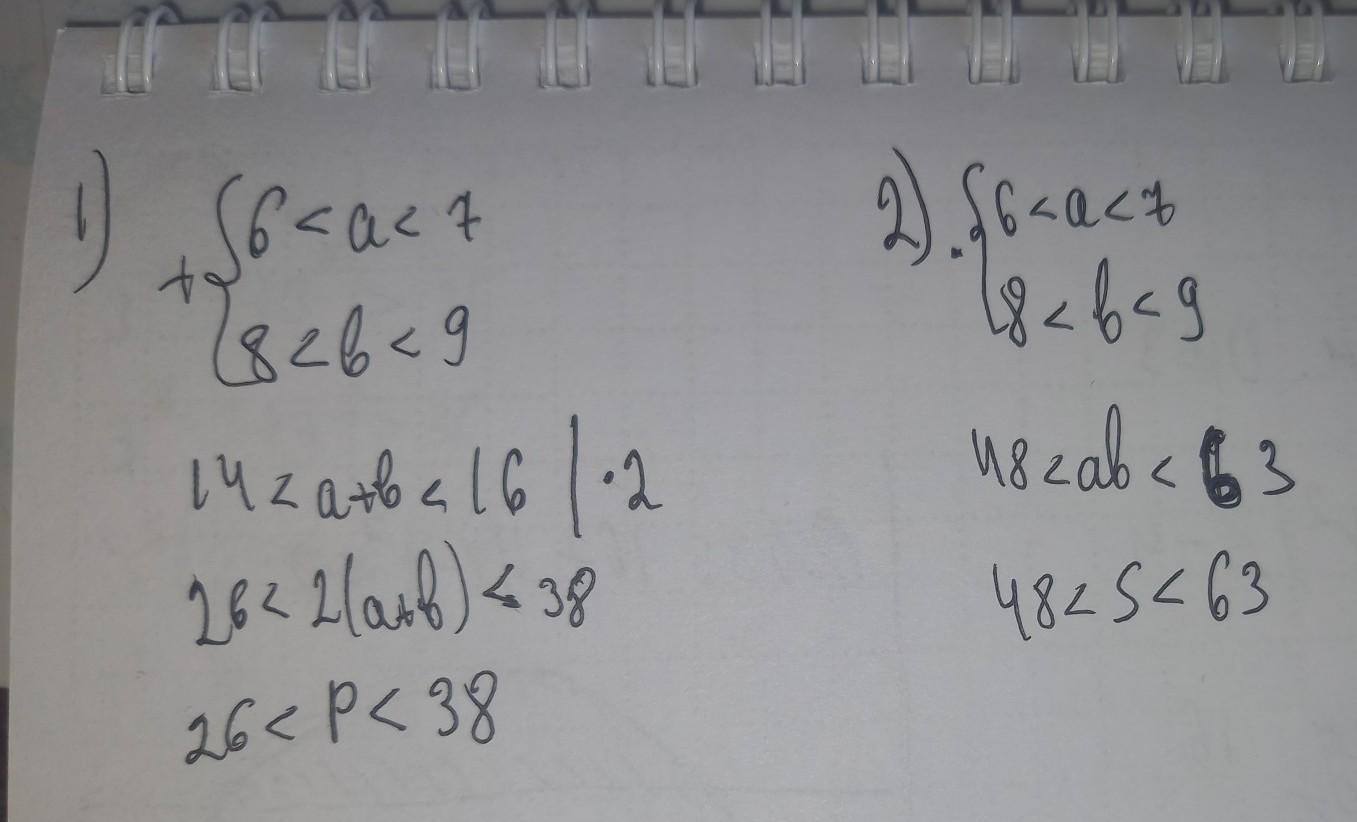 1) + { 6 < a < 7
8 < b < 9
14 < a+b < 16 | · 2
26 < 2(a+b) < 38
26 < P < 38
2) · { 6 < a < 7
8 < b < 9
48 < ab < 63
48 < S < 63